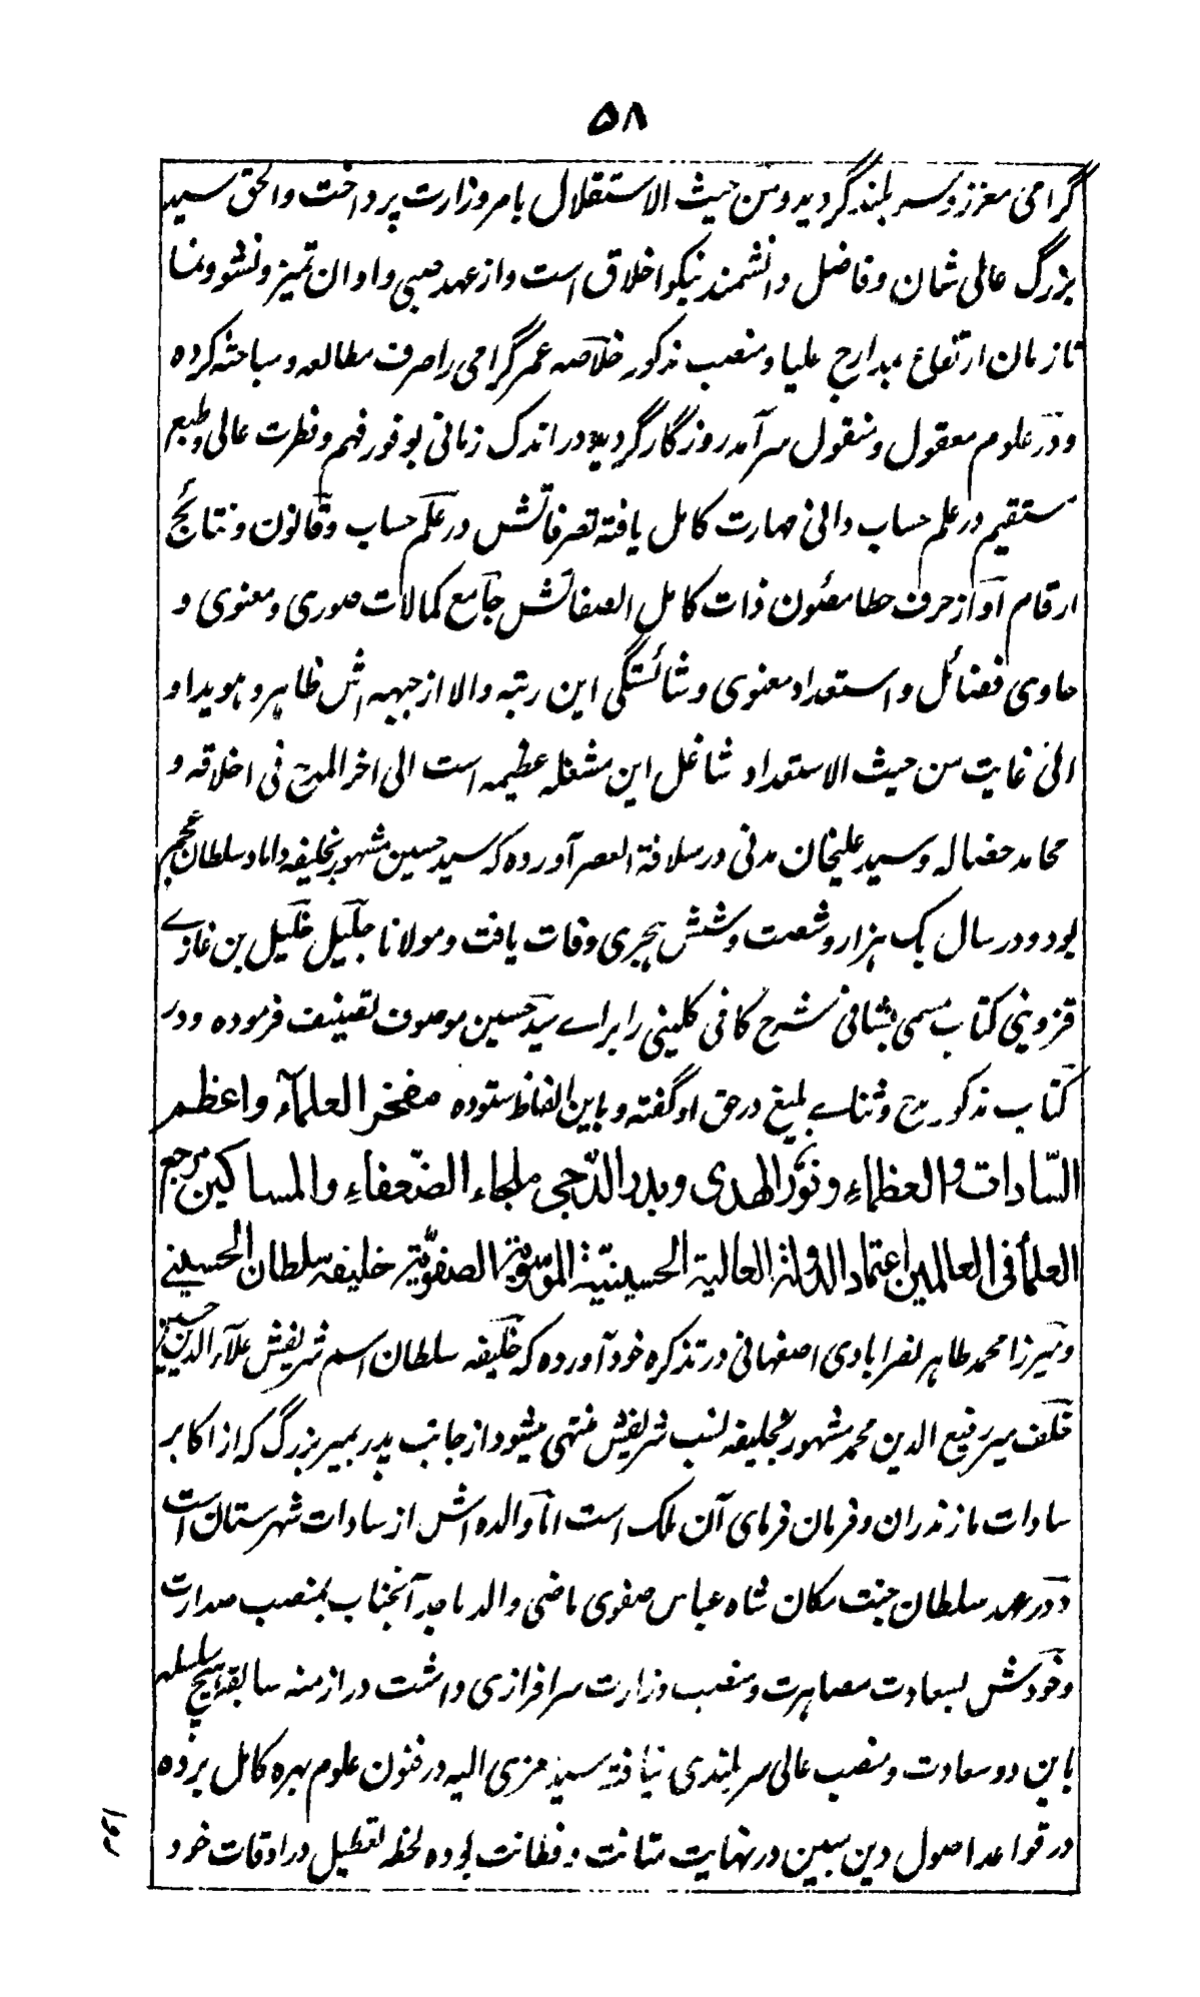 ۵۸
گرامی معزز و سر بلند گردیده و من حیث الاستقلال بامر وزارت پرداخت والحق سید
بزرگ عالی شان و فاضل دانشمند نیکو اخلاق است و از عهد صبی و اوان تمیز و نشو و نما
تا زمان ارتفاع بمدارج علیا و منصب مذکور خلاصه عمر گرامی را صرف مطالعه و مباحثه کرده
و در علوم معقول و منقول سرآمد روزگار گردیده در اندک زمانی بوفور فهم و فطرت عالی و طبع
مستقیم در علم حساب دانی مهارت کامل یافته تصرفاتش در علم حساب و قانون و نتائج
ارقام آواز حرف خطا مصئون ذات کامل الصفاتش جامع کمالات صوری و معنوی و
حاوی فضائل و استعداد معنوی و شائستگی این رتبه والا از جبهه اش ظاهر و هویدا و
الی غایت من حیث الاستعداد شاغل این مشغله عظیمه است الی اخر المدح فی اخلاقه و
محامد خصاله و سید علیخان مدنی در سلافة العصر آورده که سید حسین مشهور بخلیفه داماد سلطان عجم
بود و در سال یک هزار و شصت و شش هجری وفات یافت و مولانا جلیل خلیل بن غازے
قزوینی کتاب مسمی بشافی شرح کافی کلینی را براے سید حسین موصوف تصنیف فرموده و در
کتاب مذکور مدح و ثناے بلیغ در حق او گفته و باین الفاظ ستوده مفخر العلمآء و اعظم
السّادات و العظماءِ و نور الهدی و بدر الدّجی ملجاء الضّعفاءِ والمساکین مرجع
العلمأ فی العالمین اعتماد الدولة العالیة الحسینیّة الموسویّة الصفویّة خلیفه سلطان الحسینے
و میرزا محمد طاهر نصرابادی اصفهانی در تذکره خود آورده که خلیفه سلطان اسم شریفش علآء الدین حسین
خلف میر رفیع الدین محمد مشهور بخلیفه نسب شریفش منتهی میشود از جانب پدر بمیر بزرگ که از اکابر
سادات مازندران و فرمان فرمای آن ملک است امّا والده اش از سادات شهرستان است
و در عهد سلطان جنت مکان شاه عباس صفوی ماضی والد ماجد آنجناب بمنصب صدارت
و خودش بسعادت مصاهرت و منصب وزارت سرافرازی داشت در ازمنه سابقه هیچ سلسله
باین دو سعادت و منصب عالی سر بلندی نیافته سید معزی الیه در فنون علوم بهره کامل برده
در قواعد اصول دین مبین در نهایت متانت و فطانت بوده لحظه تعطیل در اوقات خود